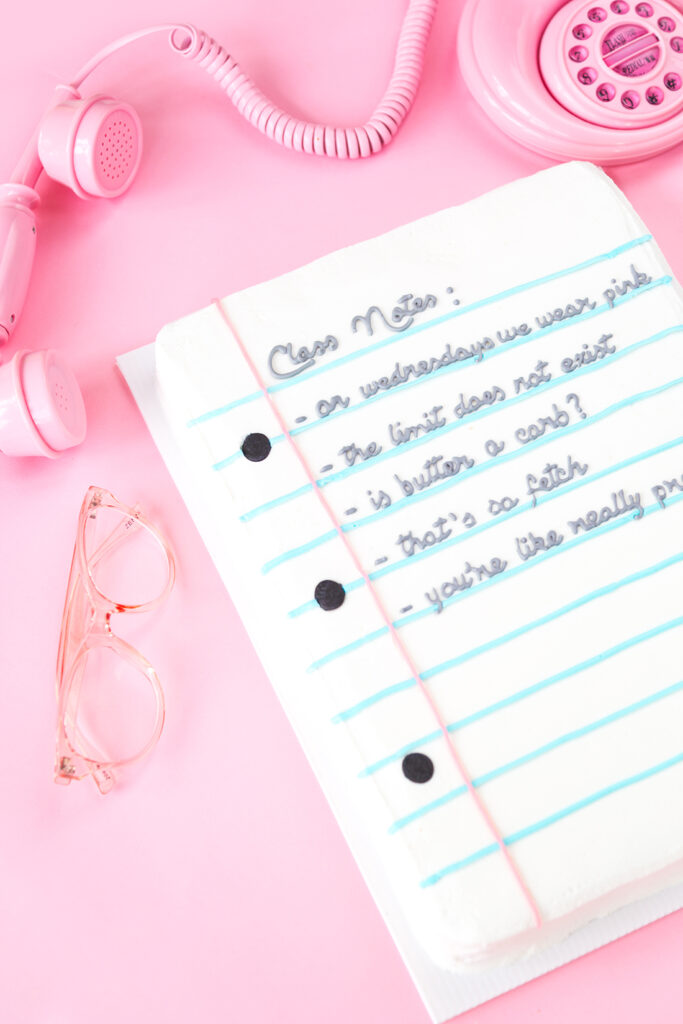 Class Notes :
- on wednesdays we wear pink
- the limit does not exist
- is butter a carb?
- that's so fetch
- you're like really pre